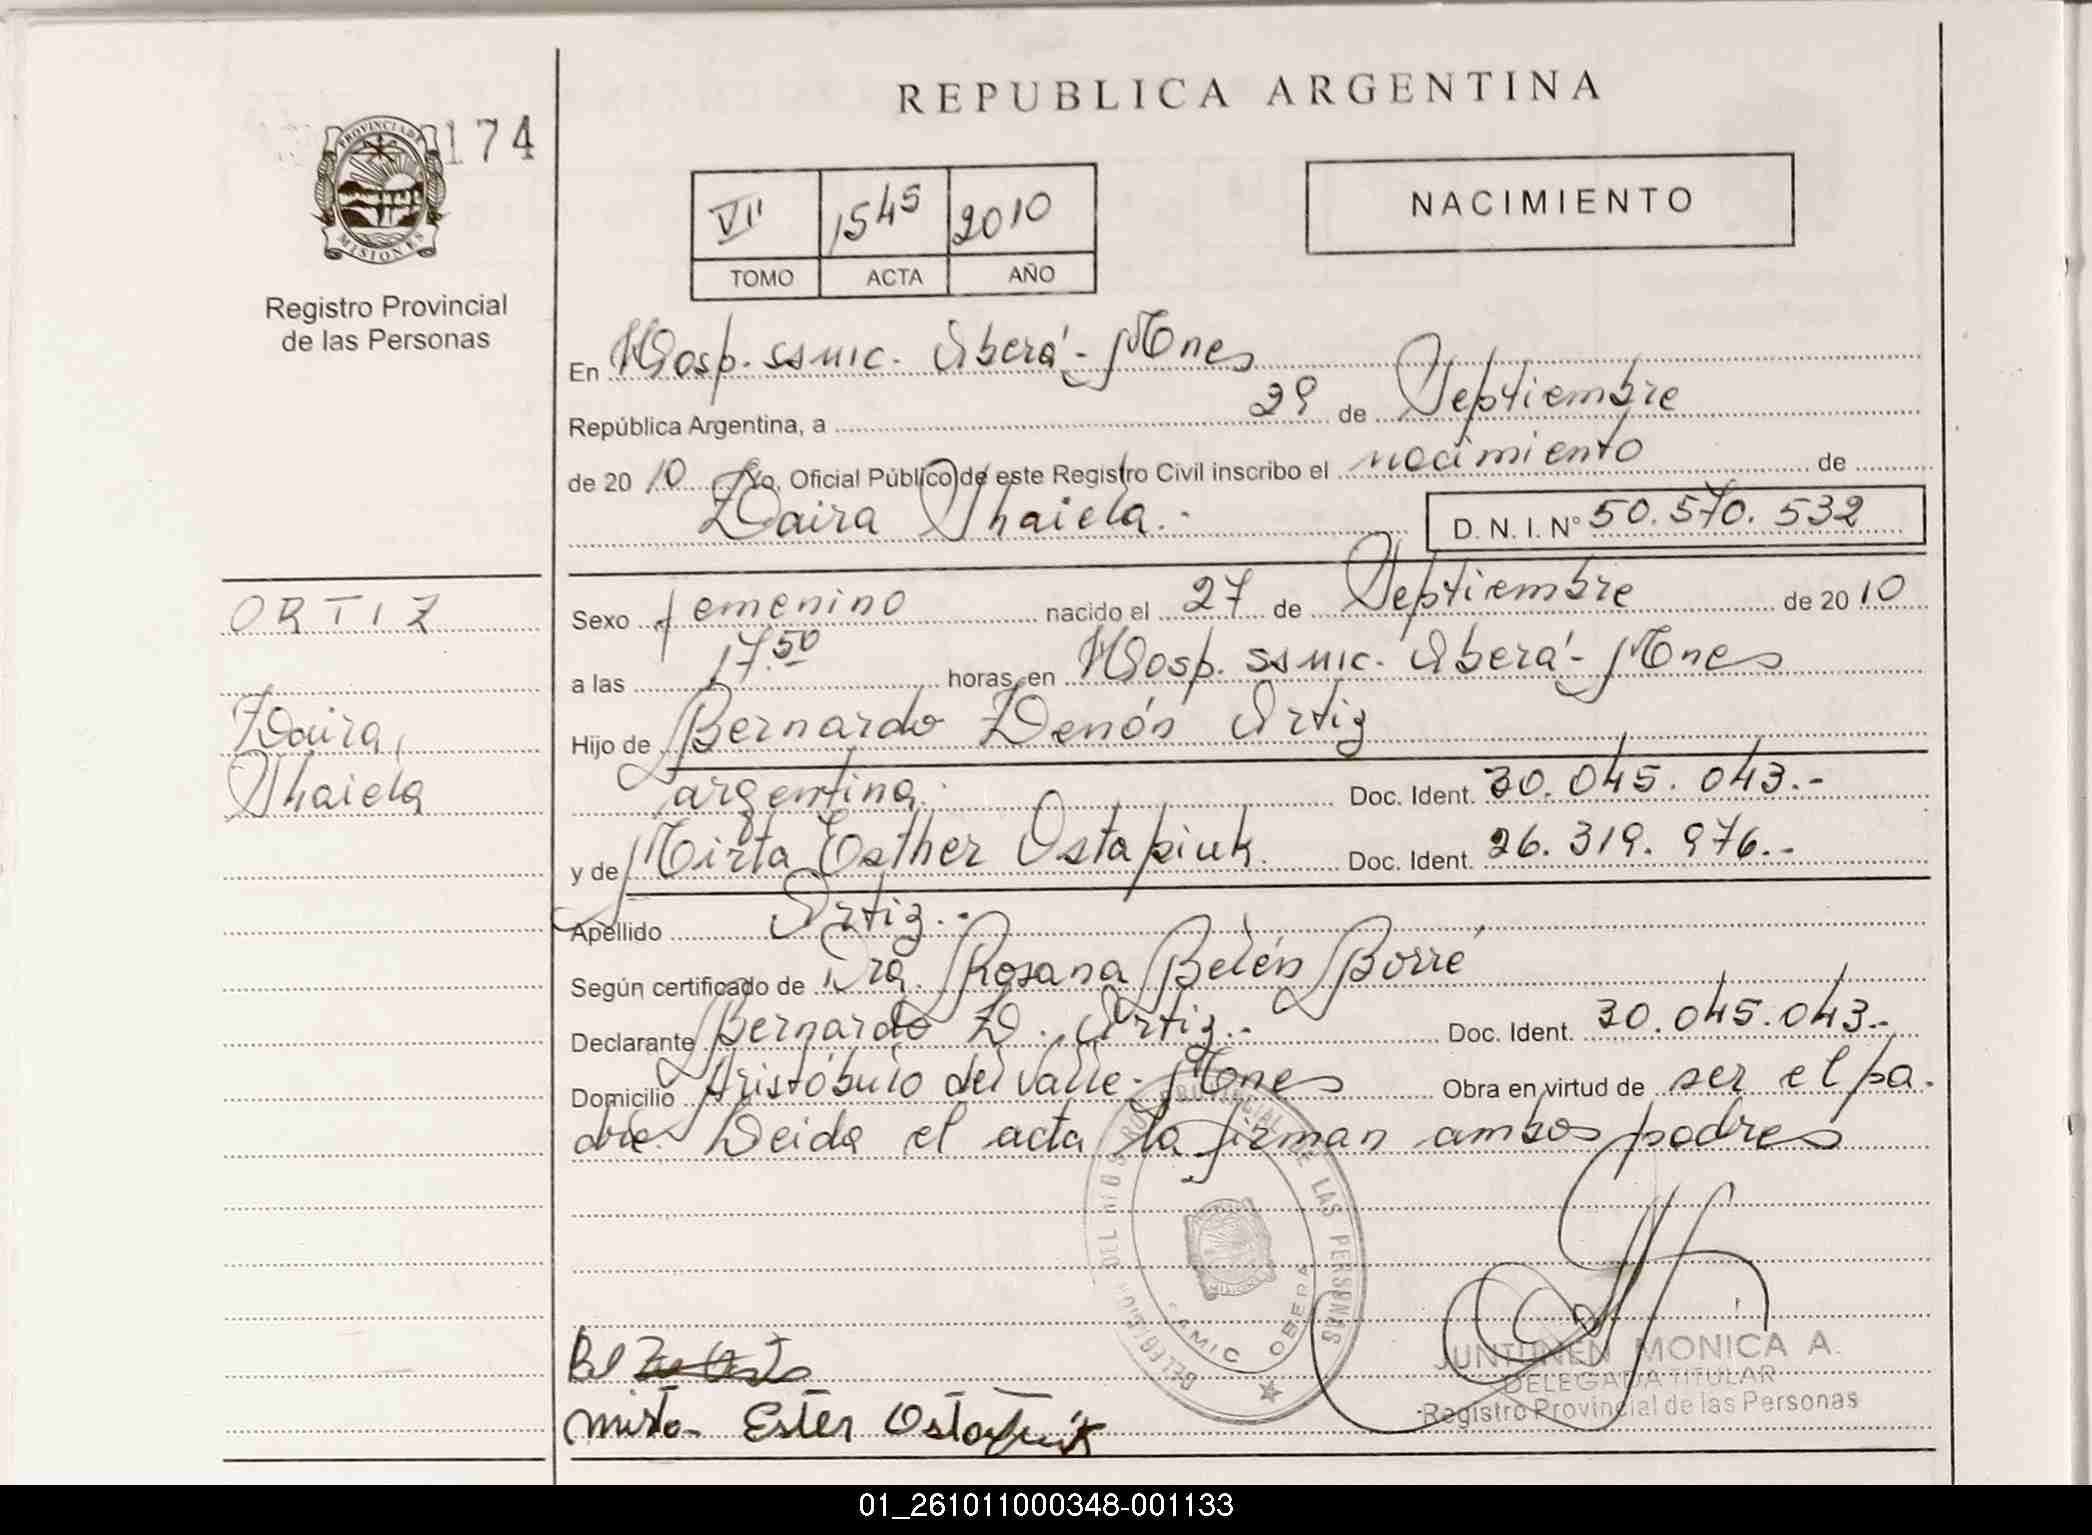 REPUBLICA ARGENTINA
174
PROVINCIA DE
MISIONES
Registro Provincial
de las Personas
VII 1545 2010
TOMO ACTA AÑO
NACIMIENTO
En Hosp. SAMIC. Oberá - Mnes
República Argentina, a 29 de Septiembre
de 2010 Yo, Oficial Público de este Registro Civil inscribo el nacimiento de
Daira Thaiela.- D. N. I. N° 50.570.532
ORTIZ
Daira,
Thaiela
Sexo femenino nacido el 27 de Septiembre de 2010
a las 17.50 horas, en Hosp. SAMIC. Oberá - Mnes
Hijo de Bernardo Ortiz
argentina. Doc. Ident. 30.045.043.-
y de Mirta Esther Ostapiuk. Doc. Ident. 26.319.976.-
Apellido Ortiz.-
Según certificado de Dra. Rosana Belén Borré
Declarante Bernardo Z. Ortiz.- Doc. Ident. 30.045.043.-
Domicilio Aristóbulo del Valle - Mnes Obra en virtud de ser el pa-
dre. Leida el acta la firman ambos padres
REGISTRO PROVINCIAL DE LAS PERSONAS
MISIONES
SAMIC OBERA
Mirta Ester Ostapiuk
JUNTUNEN MONICA A.
DELEGADA TITULAR
Registro Provincial de las Personas
01_261011000348-001133